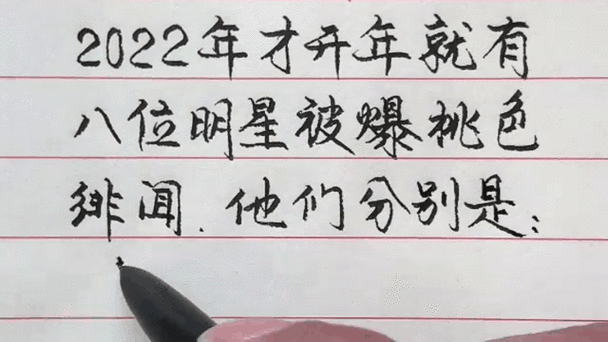 2022年才开年就有
八位明星被爆桃色
绯闻.他们分别是: